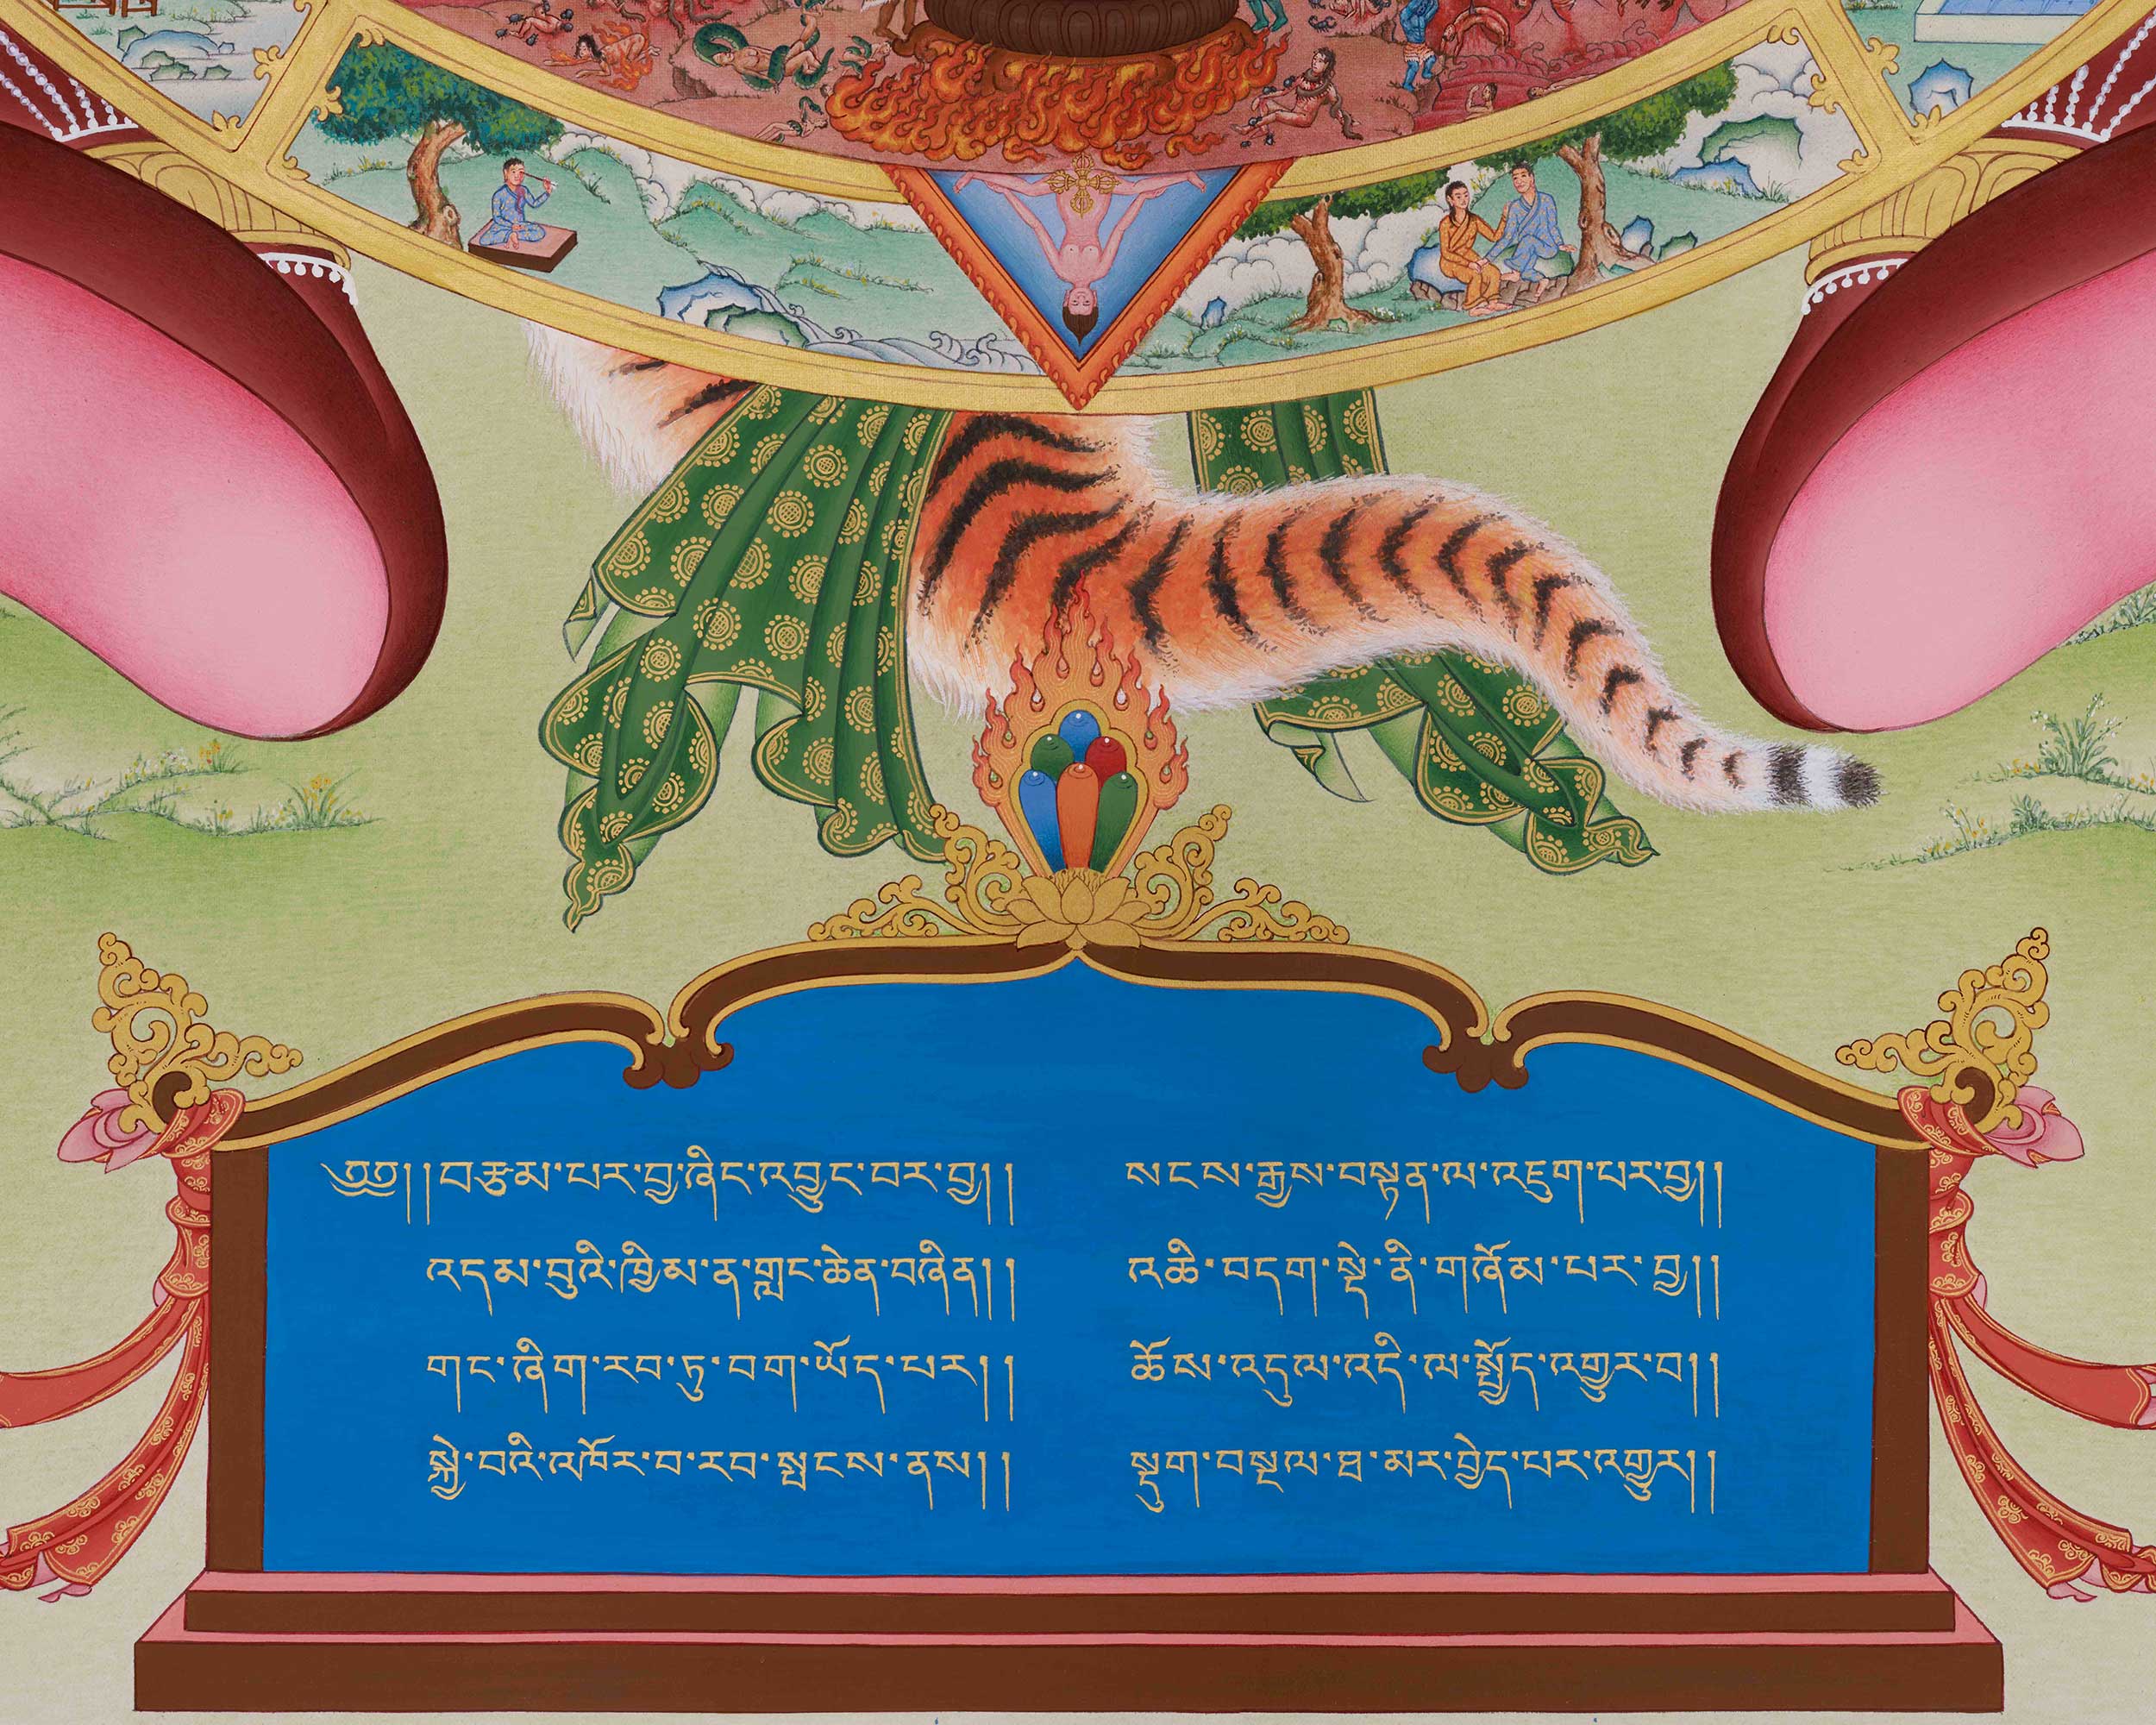 ༄༅།།བརྩམ་པར་བྱ་ཞིང་འབྱུང་བར་བྱ།། སངས་རྒྱས་བསྟན་ལ་འཇུག་པར་བྱ།།
འདམ་བུའི་ཁྱིམ་ན་གླང་ཆེན་བཞིན།། འཆི་བདག་སྡེ་ནི་གཞོམ་པར་བྱ།།
གང་ཞིག་རབ་ཏུ་བག་ཡོད་པར།། ཆོས་འདུལ་འདི་ལ་སྤྱོད་འགྱུར་བ།།
སྐྱེ་བའི་འཁོར་བ་རབ་སྤངས་ནས།། སྡུག་བསྔལ་ཐ་མར་བྱེད་པར་འགྱུར།།